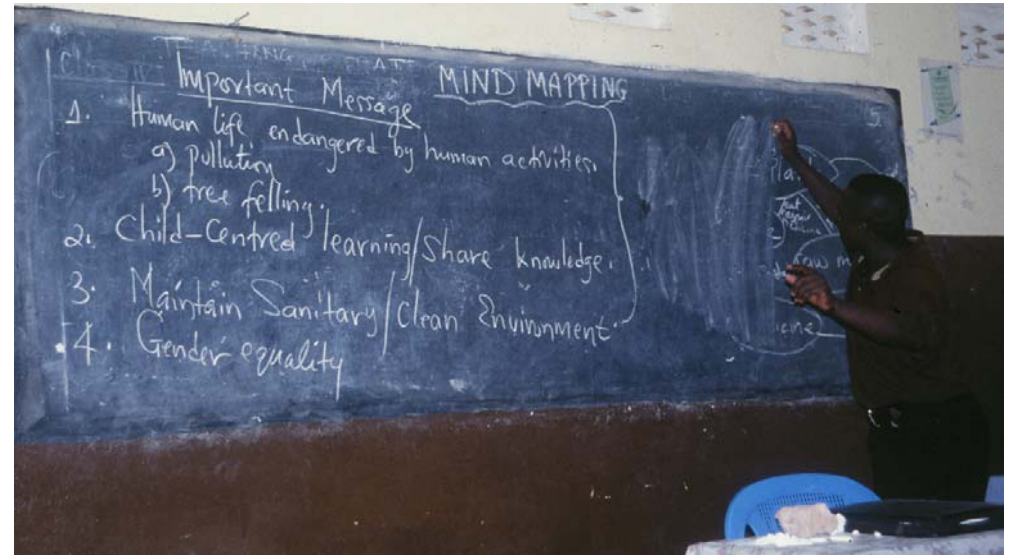 Important Message
MIND MAPPING
1. Human life endangered by human activities.
a) pollution
b) tree felling.
2. Child-Centred learning/Share knowledge.
3. Maintain Sanitary/Clean Environment.
4. Gender equality
raw m